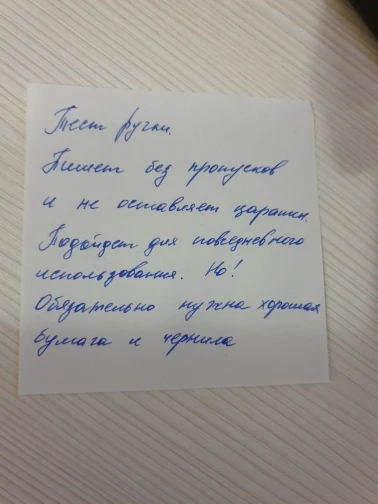 Тест ручки.
Пишет без пропусков
и не оставляет царапин.
Подойдет для повседневного
использования. Но!
Обязательно нужна хорошая
бумага и чернила